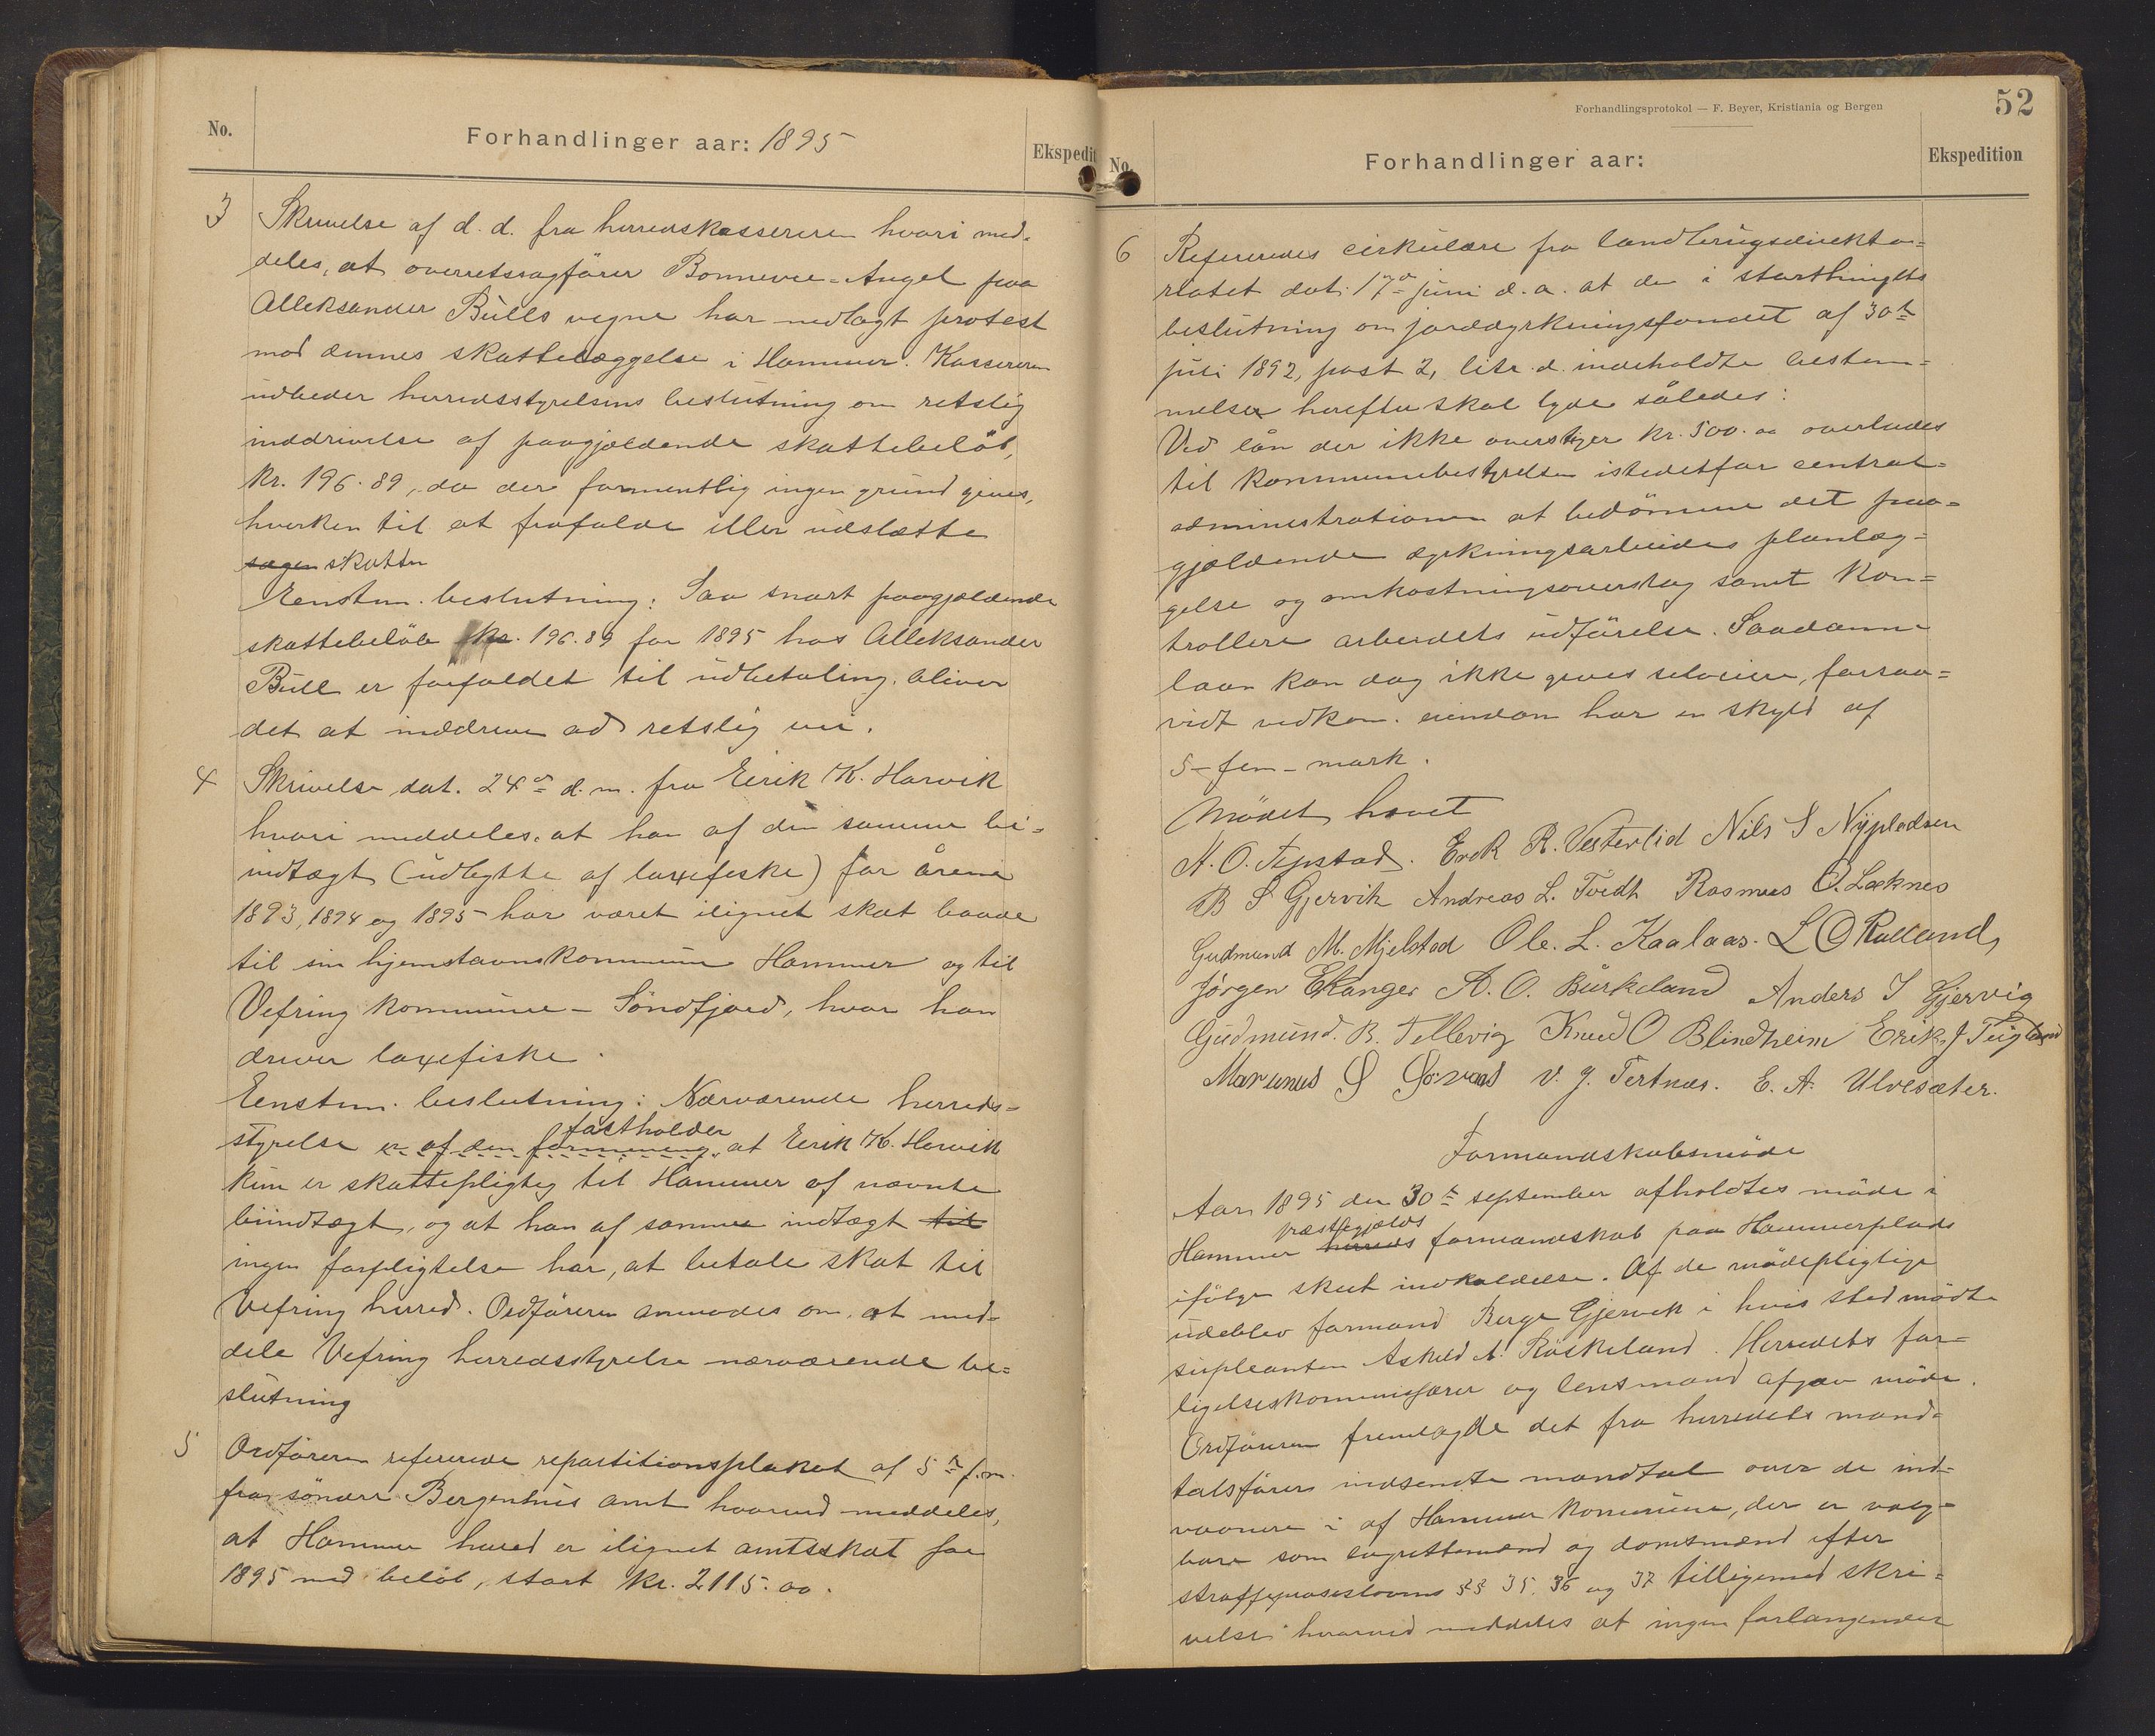 No.
Forhandlinger aar: 1895
Ekspedit
3 Skrivelse af d. d. fra herredskassereren hvori med-
deles, at overretssagfører Bonnevie-Angel paa
Alleksander Bulls vegne har nedlagt protest
mod dennes skattelæggelse i Hammer. Kassereren
udbeder herredsstyrelsens beslutning om retslig
inddrivelse af paagjældende skattebeløb,
kr. 196.89, da der formentlig ingen grund gives,
hverken til at frafalde eller udslætte
sagen skatten
Eenstem. beslutning: Saa snart paagjældende
skattebeløb kr. 196.89 for 1895 hos Alleksander
Bull er forfaldet til udbetaling, bliver
det at inddrive ad retslig vei.
4 Skrivelse dat. 24de d. m. fra Eirik K. Harvik
hvori meddeles, at han af den samme bi-
indtægt (udbytte af laxefiske) for årene
1893, 1894 og 1895 har været ilignet skat baade
til sin hjemstavnskommune Hammer og til
Vefring kommune - Søndfjord, hvor han
driver laxefiske.
Eenstem. beslutning: Nærværende herreds-
fastholder
styrelse er af den formening, at Eirik K. Hervik
kun er skattepligtig til Hammer af nævnte
biindtægt, og at han af samme indtægt til
ingen forpligtelse har, at betale skat til
Vefring herred. Ordføreren anmodes om, at med-
dele Vefring herredsstyrelse nærværende be-
slutning
5 Ordføreren refererede repartitionsplakat af 5te f. m.
fra søndre Bergenhus amt hvorved meddeles,
at Hammer herred er ilignet amtsskat for
1895 med beløb, stort kr. 2115.00.
Forhandlingsprotokol — F. Beyer, Kristiania og Bergen
52
No.
Forhandlinger aar:
Ekspedition
6 Refereredes cirkulære fra landbrugsdirekto-
riatet dat. 17de juni d. a. at de i storthingets
beslutning om jorddyrkningsfondet af 30te
juli 1892, post 2, litr. d. indeholdte bestem-
melser herefter skal lyde således:
Ved lån der ikke overstiger kr. 500.00 overlades
til kommunebestyrelsen istedetfor central-
administrationen at bedømme det paa-
gjældende dyrkningsarbeides planlæg-
gelse og omkostningsoverslag samt kon-
trollere arbeidets udførelse. Saadanne
laan kan dog ikke gives selveiere, forsaa-
vidt vedkom. eiendom har en skyld af
5 - fem - mark.
Mødet hævet
A. O. Tepstad. Erik R. Vesterlid Nils S Nypledsen
B S Gjervik Andreas L. Tvedt Rasmus O. Læknes
Gudmund M. Mjelstad Ole. L. Kaalaas. L O Rølland,
Jørgen Ekanger A. O. Burkeland Anders I Gjervig
Gudmund. B. Tellevig Knud O Blindheim Erik J Teigland
Marunus S Sørvaas V. J. Tertnæs. E. A. Ulvesæter.
Formandskabsmøde
Aar 1895 den 30te september afholdtes møde i
præstegjælds
Hammer herreds formandskab paa Hammerplads
ifølge skeet indkaldelse. Af de mødepligtige
udeblev formand Berge Gjervik i hvis sted mødte
supleanten Askild A. Røskeland. Herredets for-
ligelseskommissærer og lensmand afgav møde.
Ordføreren fremlagde det fra herredets mand-
talsfører indsendte mandtal over de ind-
vaanere i af Hammer kommune, der er valg-
bare som lagrettemænd og domsmænd efter
straffeproceslovens §§ 35. 36 og 37 tilligemed skri-
velse hvorved meddeles at ingen forlangender